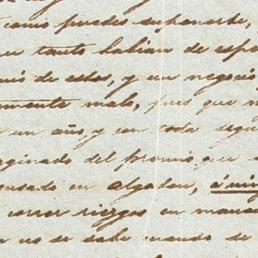 como puedes suponerte,
tanto habian de espe
mis de estos, y un negocio
mente malo, pues que
un año, y con toda segu
ginado del premio, que
ensado en algodon,
correr riezgos en mano
no se sabe cuando de